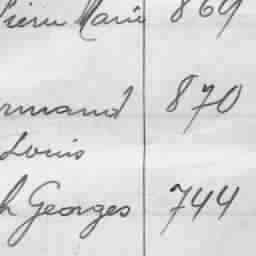 Pierre Marie 869
rmand 870
Louis
h Georges 744